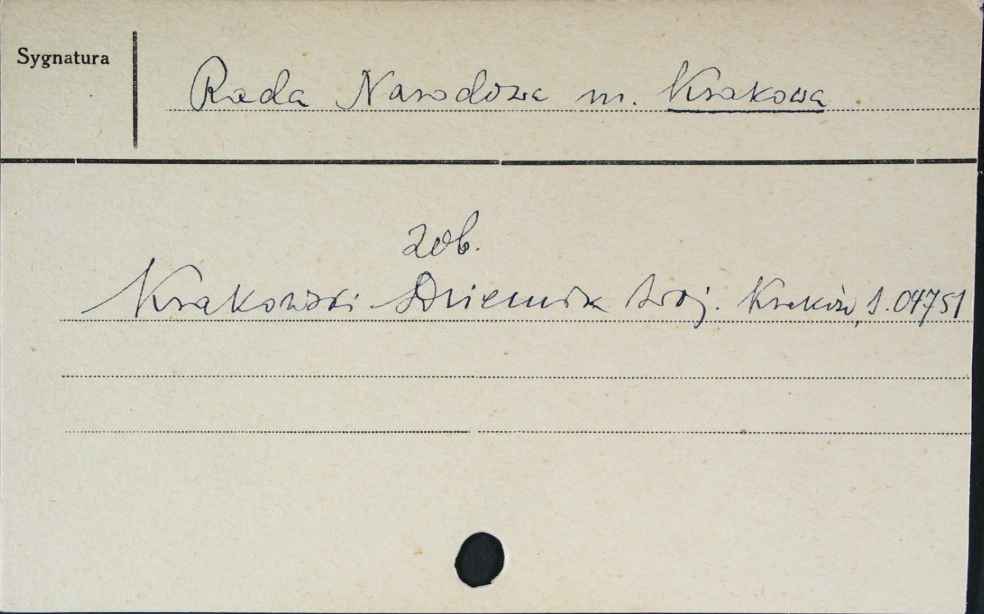 Sygnatura
Rada Narodowa m. Krakowa
zob.
Krakowski Dziennik Woj. Kraków, S.04751